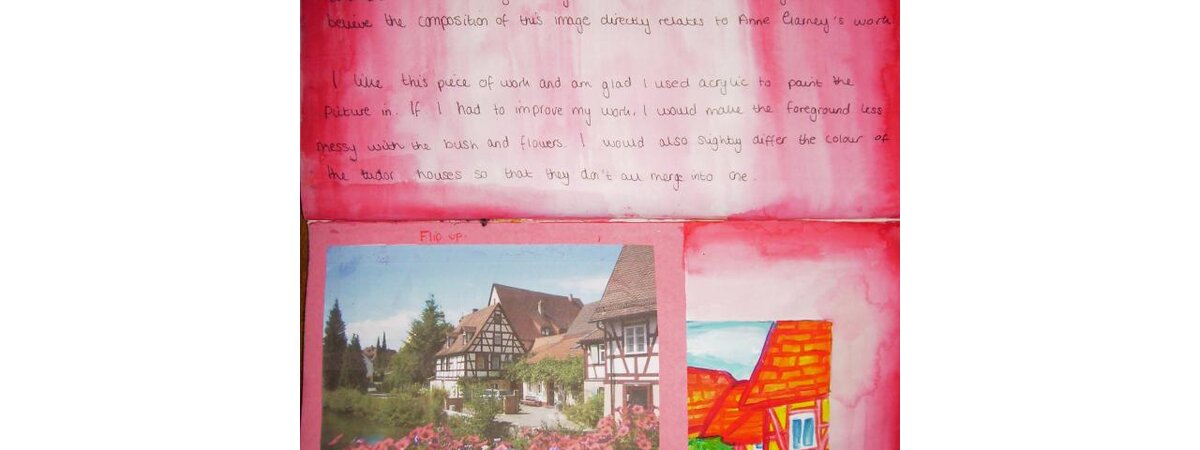 believe the composition of this image directly relates to Anne Carney's work
I like this piece of work and am glad I used acrylic to paint the
picture in. If I had to improve my work, I would make the foreground less
messy with the bush and flowers. I would also slightly differ the colour of
the tudor houses so that they don't all merge into one.
Flip up.